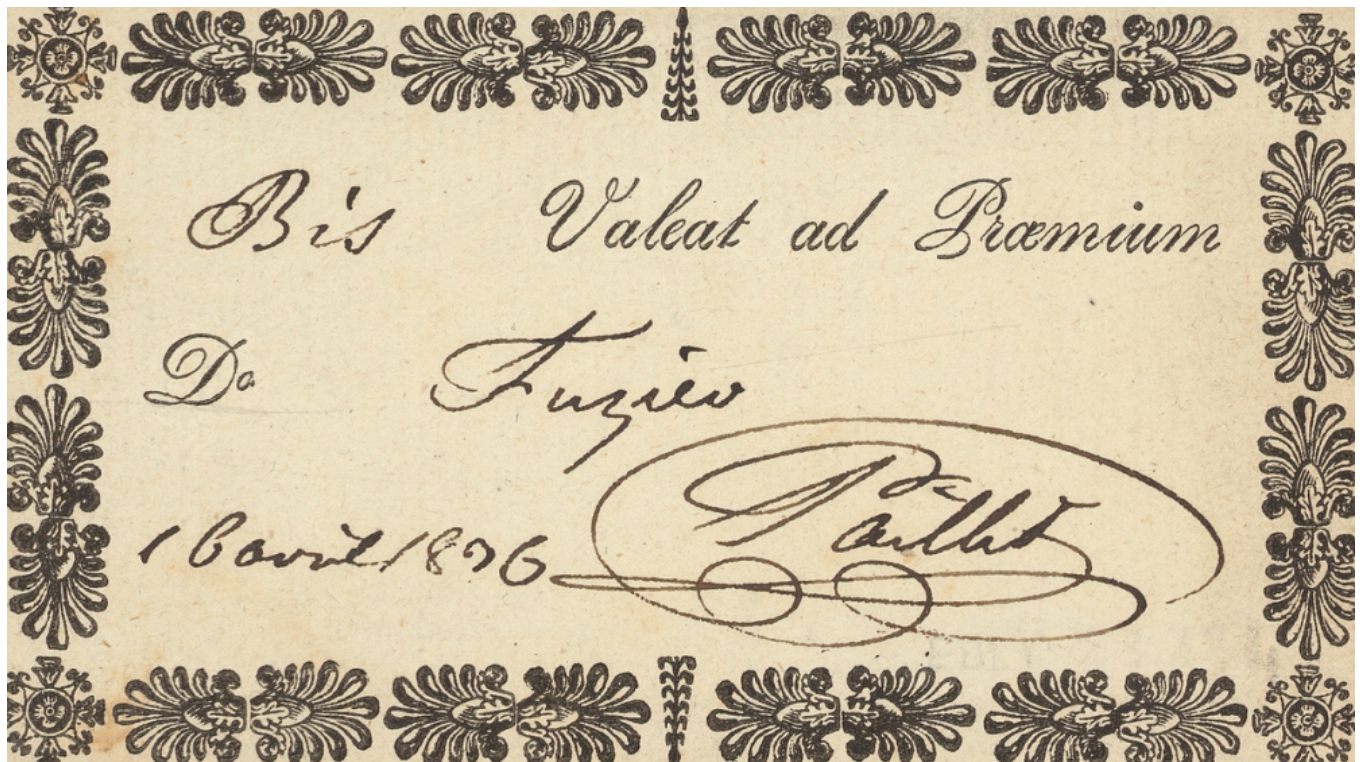 Bis Valeat ad Præmium
Do Fuzier
16 avril 1836
Paillet